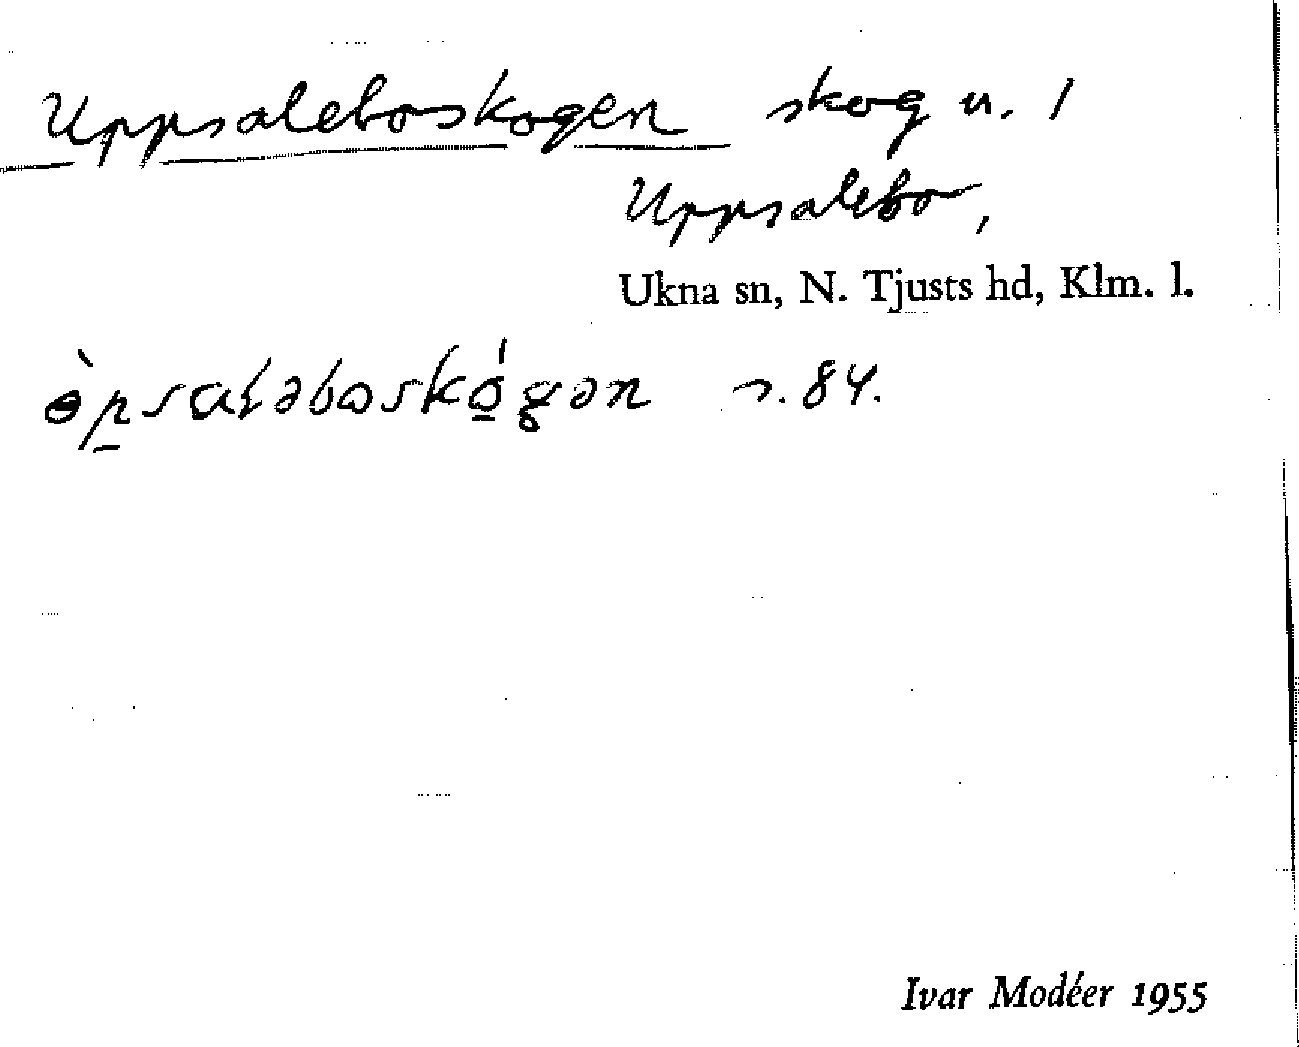 Uppsaleboskogen skog u. /
Uppsalebo,
Ukna sn, N. Tjusts hd, Klm. l.
s. 84.
Ivar Modéer 1955